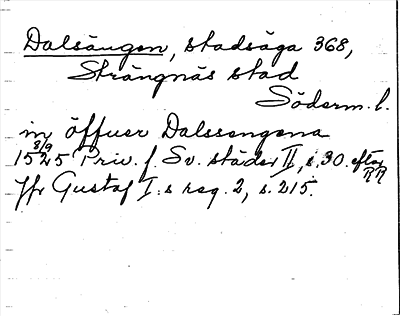 Dalsängen, stadsäga 368,
Strängnäs stad
Söderm. l.
in öffuer Dalssengena
15 8/9 25 Priv. f. Sv. städer II, s. 30. efter RR
Jfr Gustaf I:s reg. 2, s. 215.